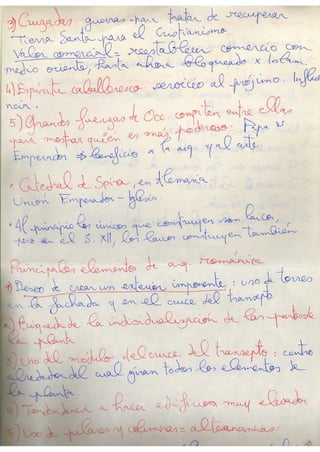 3) Cruzadas: guerras para tratar de recuperar
Tierra Santa para el Cristianismo.
Valor comercial = reestablecer comercio con
medio oriente, hasta ahora bloqueado x Islam.
4) Espíritu caballeresco: servicio al prójimo. Influen
ncia.
5) Grandes fuerzas de Occ. compiten entre ellas
para mostrar quién es más poderoso: Papa v
Emperador → beneficio a la arq. y al arte.
· Catedral de Spira, en Alemania.
Unión Emperador - Iglesia.
· Al principio los únicos que construyen son laicos,
pero en el S. XII, los laicos construyen también
Principales elementos de arq. románica
1) Deseo de crear un exterior imponente: uso de torres
en la fachada y en el cruce del transepto
2) Búsqueda de la individualización de las partes de
la planta
3) Uso del módulo del cruce del transepto: centro
alrededor del cual giran todos los elementos de
la planta.
4) Tendencia a hacer edificios muy elevados
5) Uso de pilares y columnas = alternancias.